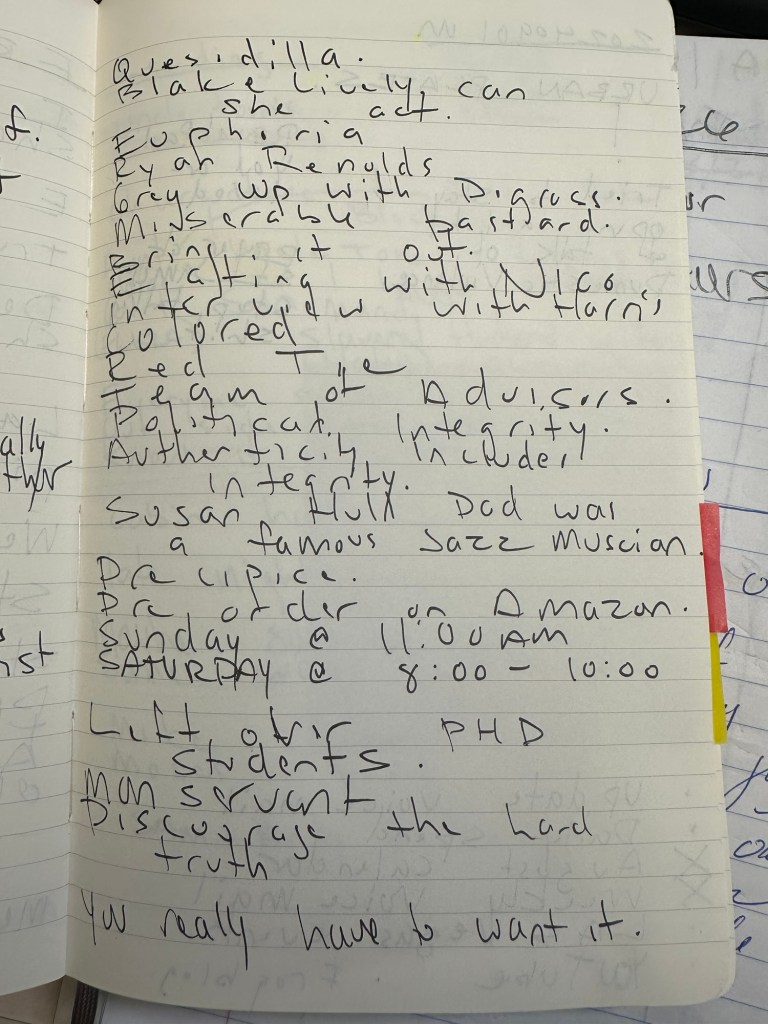 Quesidilla.
Blake Lively, can
she act.
Euphoria
Ryan Renolds
Grey up with Digrass.
Miserable bastard.
Bring it out.
Eating with Nico
Interview with Harris
Colored
Red Tie
Team of Advisors.
Political Integrity.
Authenticity Includes
integrity.
Susan Hull Dad was
a famous Jazz Muscian.
Precipice.
Pre order on Amazon.
Sunday @ 11:00 AM
SATURDAY @ 8:00 - 10:00
Left over PHD
students.
Man servant
Discourage the hard
truth
You really have to want it.
f.
ally
ther
nst